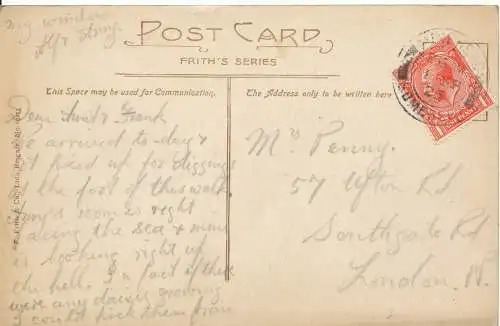 my window
POST CARD
FRITH'S SERIES
This Space may be used for Communication.
The Address only to be written here
Dear Aunt & Frank
We arrived to-day &
got fixed up for diggings
at the foot of this walk
room is right
facing the sea & mine
is looking right up
the hill. In fact if there
were any daisies growing
I could pick them from
Mrs Penny.
57 Ufton Rd
Southgate Rd
London. N.
F. Frith & Co., Ltd., Reigate.